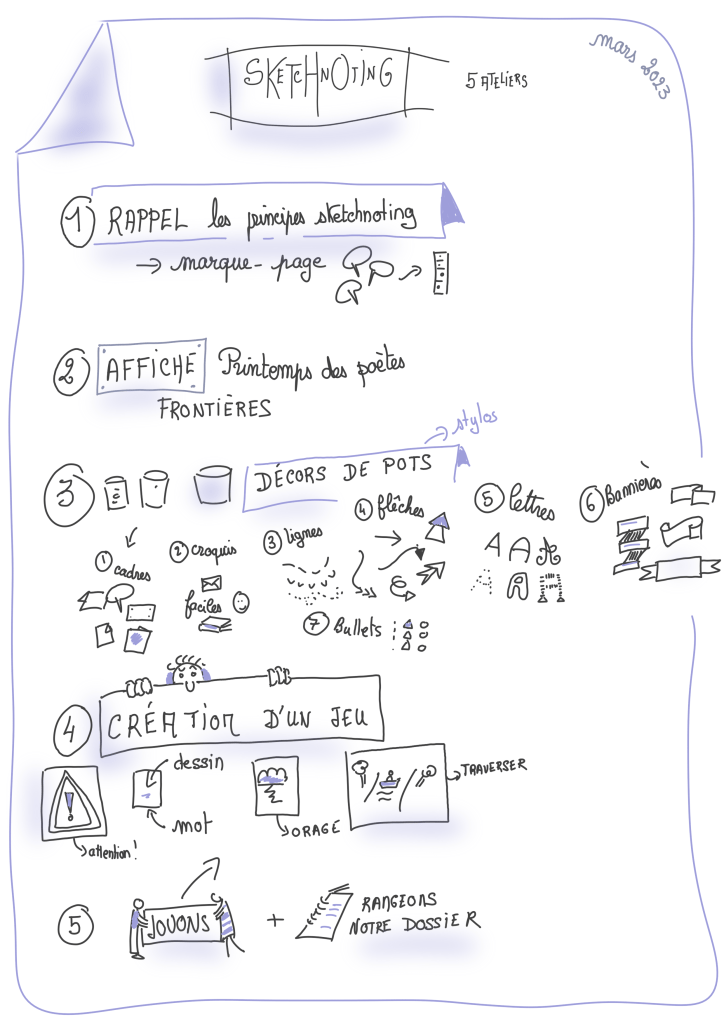 SKETCHNOTING
5 ATELIERS
mars 2023
1 RAPPEL les principes sketchnoting
→ marque-page
2 AFFICHE Printemps des poètes
FRONTIÈRES
3 DÉCORS DE POTS
→ stylos
1 cadres
2 croquis
faciles
3 lignes
4 flêches
5 lettres
A A A
A A A
6 Bannières
7 Bullets
4 CRÉATION D'UN JEU
! attention!
dessin
mot
ORAGE
TRAVERSER
5 JOUONS + RANGEONS
NOTRE DOSSIER